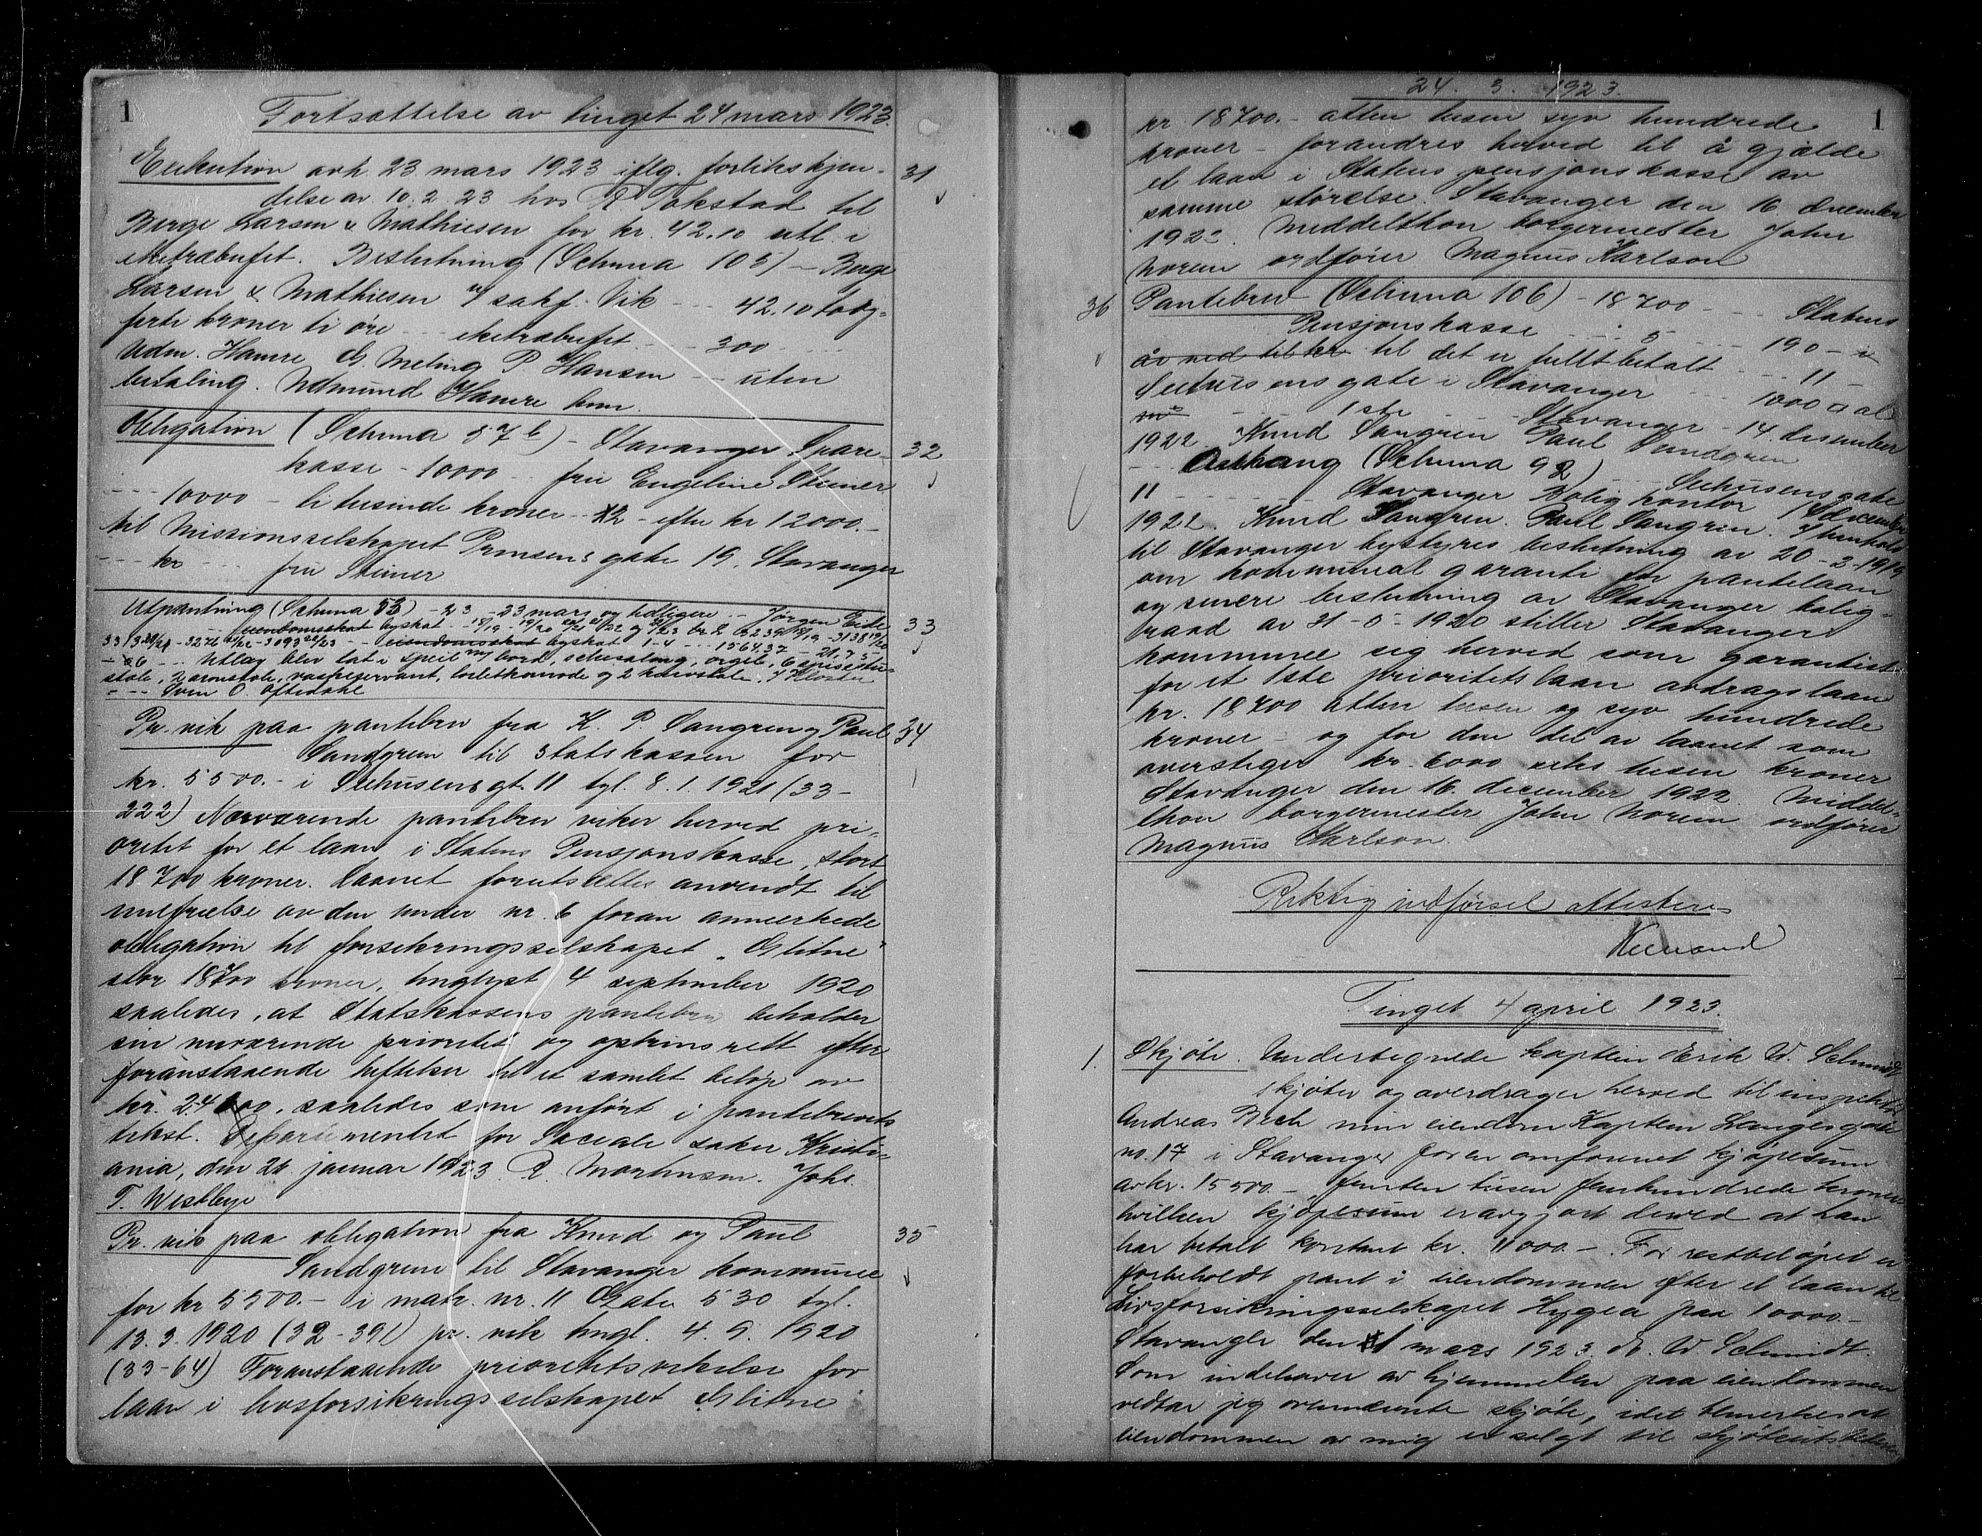 1
Fortsættelse av tinget 24 mars 1923.
Exekution avh. 23 mars 1923 iflg. forlikskjen-
31
delse av 10.2.23 hos R Tokstad til
Berge Larsen & Mathiesen for kr. 42.10 utl. i
eketræbufet. Beslutning (Schema 105) - Berge
Larsen & Mathiesen v/ sakf. Vik - - - 42.10 toog-
førti kroner ti øre - - - eketræbufet - - - 300
Udm. Hamre G. Meling P Hansen - - - uten
betaling. Udmund Hamre hmr.
Obligation (Schema 87 b) - Stavanger Spare-
32
kasse - 10000 - - fru Engeline Steiner
- - - 10000 - ti tusinde kroner - - 2 - efter kr 12000.-
til Missionsselskapet Prinsens gate 19. Stavanger
- - - kr - - - fru Steiner
Utpantning (Schema 53) - 23 - 23 mars og tidligere - - Jørgen Eide
33
- - - eiendomsskat byskat
- - - Utlæg blev tat i speil m/ bord, chesalong, orgel, 6 spisestue-
stole, 2 armstole, vaskeservant, toiletkomode og 2
- - - Sven O. Oftedahl
Pr. vik paa pantebrev fra K. P. Sangren og Paul
34
Sandgren til Statskassen for
kr. 5500.- i Seehusensgt. 11 tgl. 8.1.1921 (33-
222) Nærværende pantebrev viker herved pri-
oritet for et laan i Statens Pensjonskasse, stort
18700 kroner. Laanet forutsættes anvendt til
innfrielse av den under nr. 6 foran anmerkede
obligation til forsikringsselskapet "Glitne"
stor 18700 kroner, tinglyst 4 september 1920
saaledes, at Statskassens pantebrev beholder
sin nuværende prioritet og optrinsrett efter
foranstaaende heftelser til et samlet beløp av
kr. 24000, saaledes som anført i pantebrevets
tekst. Departementet for Sociale saker Kristi-
ania, den 24 januar 1923. R. Mortensen. Johs.
T. Westbye
Pr. vik paa obligation fra Knud og Paul
35
Sandgren til Stavanger kommune
for kr 5500.- i matr. nr. 11 Gate 530 tgl.
13.3.1920 (32-391) pr. vik tingl. 4.9.1920
(33-64) Foranstaaende prioritetsvikelse for
laan i livsforsikringsselskapet Glitne
24. 3. 1923.
1
kr 18700.- atten tusen syv hundrede
kroner - forandres herved til å gjælde
et laan i Statens pensjonskasse av
samme størelse. Stavanger den 16 december
1922. Middelthon borgermester John
Norem ordfører Magnus Karlson
36
Pantebrev (Schema 106) - 18700 - - - Statens
Pensjonskasse - - - 5 - - - 190 - i
år ned til kr til det er fullt betalt - - - 11 -
Seehusensgate i Stavanger - - - 1000
- - - 1ste - - - Stavanger - 14. desember
1922. Knud Sangren Paul Sundgren
- - - Anhang (Schema 92) - - - Seehusensgate
11 - - - Stavanger Boligkontor 14 december
1922. Knud Sangren. Paul Sangren. I henhold
til Stavanger bystyres beslutning av 20-3-1919
om kommunal garanti for pantelaan
og senere beslutning av Stavanger bolig-
raad av 31-5-1920 stiller Stavanger
kommune sig herved som garantist
for et 1ste prioritetslaan avdragslaan
kr. 18700 atten tusen og syv hundrede
kroner - og for den del av laanet som
overstiger kr. 6000 seks tusen kroner
Stavanger den 16. december 1922. Middel-
thon borgermester John Norem ordfører
Magnus Karlson.
Riktig indførsel attesteres
Tinget 4 april 1923.
1.
Skjøte. Undertegnede kaptein Erik W. Schmidt
skjøter og overdrager herved til inspektør
Andreas Bech min eiendom Kaptein Langes gate
no. 17 i Stavanger for en omforenet kjøpesum
av kr. 15500.- femten tusen femhundrede kroner
hvilken kjøpesum er avgjort derved at han
har betalt kontant kr. 11000.-. For restbeløpet er
forbeholdt pant i eiendommen efter et laan til
Livsforsikringsselskapet Hygea paa 10000.-
Stavanger den 1 mars 1923. E. W. Schmidt.
Som indehaver av hjemmelen paa eiendommen
vedtar jeg ovennævnte skjøte, idet bemerkes at
eiendommen av mig er solgt til skjøteutstederen